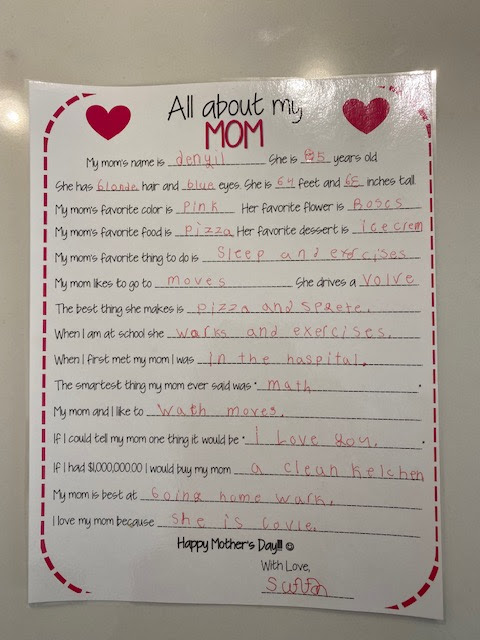 All about my
MOM
My mom's name is denyil She is 5 years old.
She has blonde hair and blue eyes. She is 64 feet and 65 inches tall.
My mom's favorite color is pink Her favorite flower is Roses
My mom's favorite food is pizza Her favorite dessert is icecrem
My mom's favorite thing to do is Sleep and exrcises
My mom likes to go to moves She drives a volve
The best thing she makes is pizza and sprete.
When I am at school she warks and exercises.
When I first met my mom I was in the haspital.
The smartest thing my mom ever said was "math."
My mom and I like to wath moves.
If I could tell my mom one thing it would be "i Love you."
If I had $1,000,000.00 I would buy my mom a clean ketchen
My mom is best at Going home wark.
I love my mom because she is lovie.
Happy Mother's Day!!! ☺
With Love,